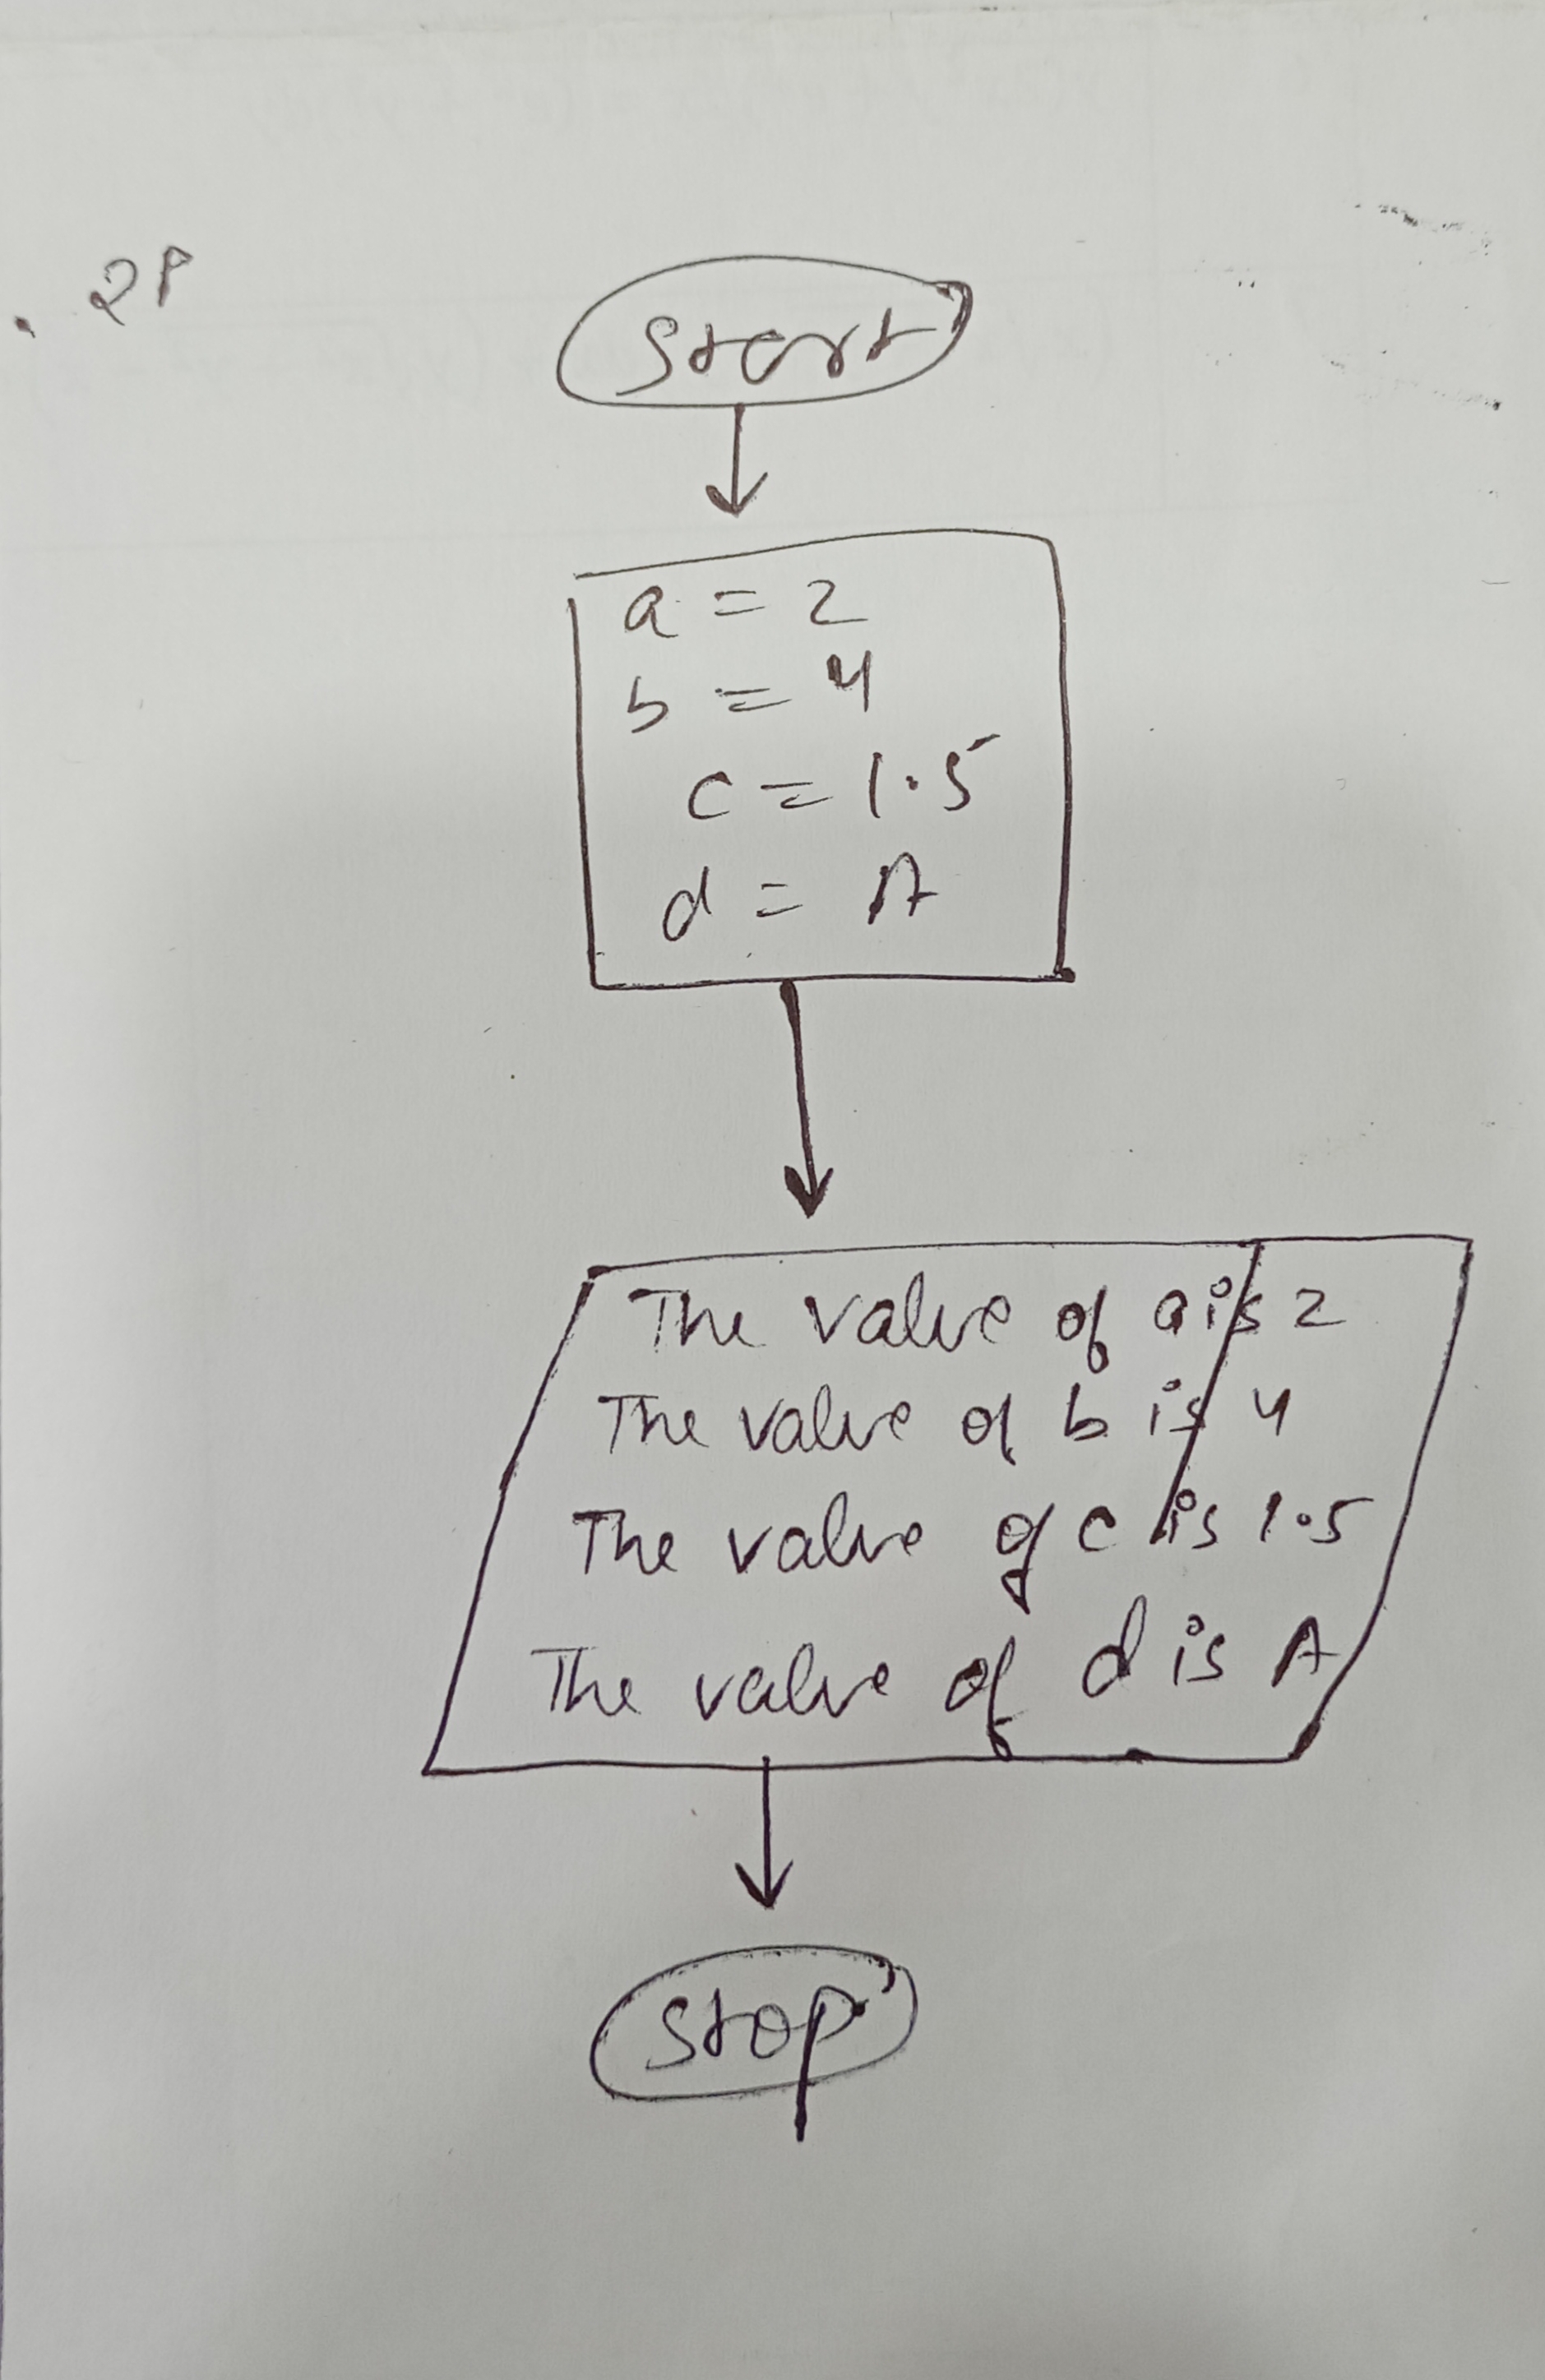 2P
Start
a = 2
b = 4
c = 1.5
d = A
The value of a is 2
The value of b is 4
The value of c is 1.5
The value of d is A
Stop